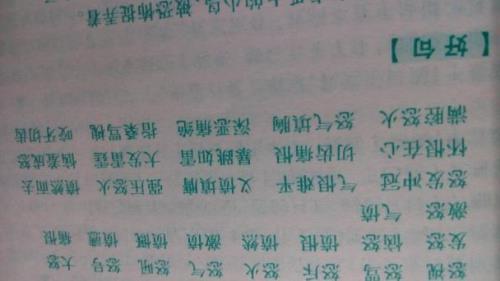 怒视 怒骂 怒斥 怒火 怒气 怒吼 怒号 大怒
发怒 愤怒 愤恨 愤然 激愤 愤慨 愤懑 痛恨
激怒 气愤
怒发冲冠 气恨难平 义愤填膺 强压怒火 愤然而去
怀恨在心 切齿痛恨 暴跳如雷 大发雷霆 恼羞成怒
满腔怒火 怒气填胸 深恶痛绝 指桑骂槐 咬牙切齿
【好句】
上的小鸟,被恐怖捉弄着。